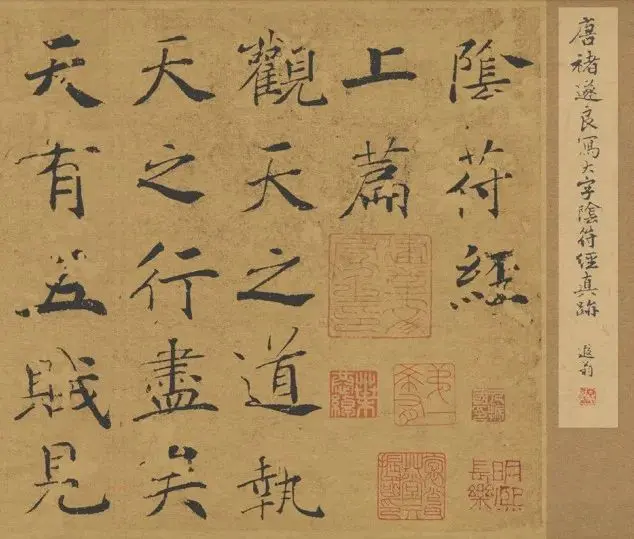 唐褚遂良寫大字陰符經真跡
遐翁
陰符經
上篇
觀天之道執
天之行盡矣
天有五賊見